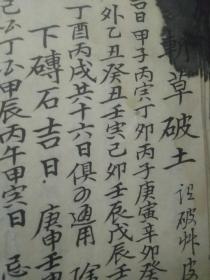 斬草破土 詎破艸皮
吉日甲子丙寅丁卯丙子庚寅辛卯癸
外乙丑癸丑壬寅己卯壬辰戊辰壬
丁酉丙戌共六十六日俱可通用 除
下磚石吉日 庚申壬
丁亥甲辰丙午甲寅日 忌